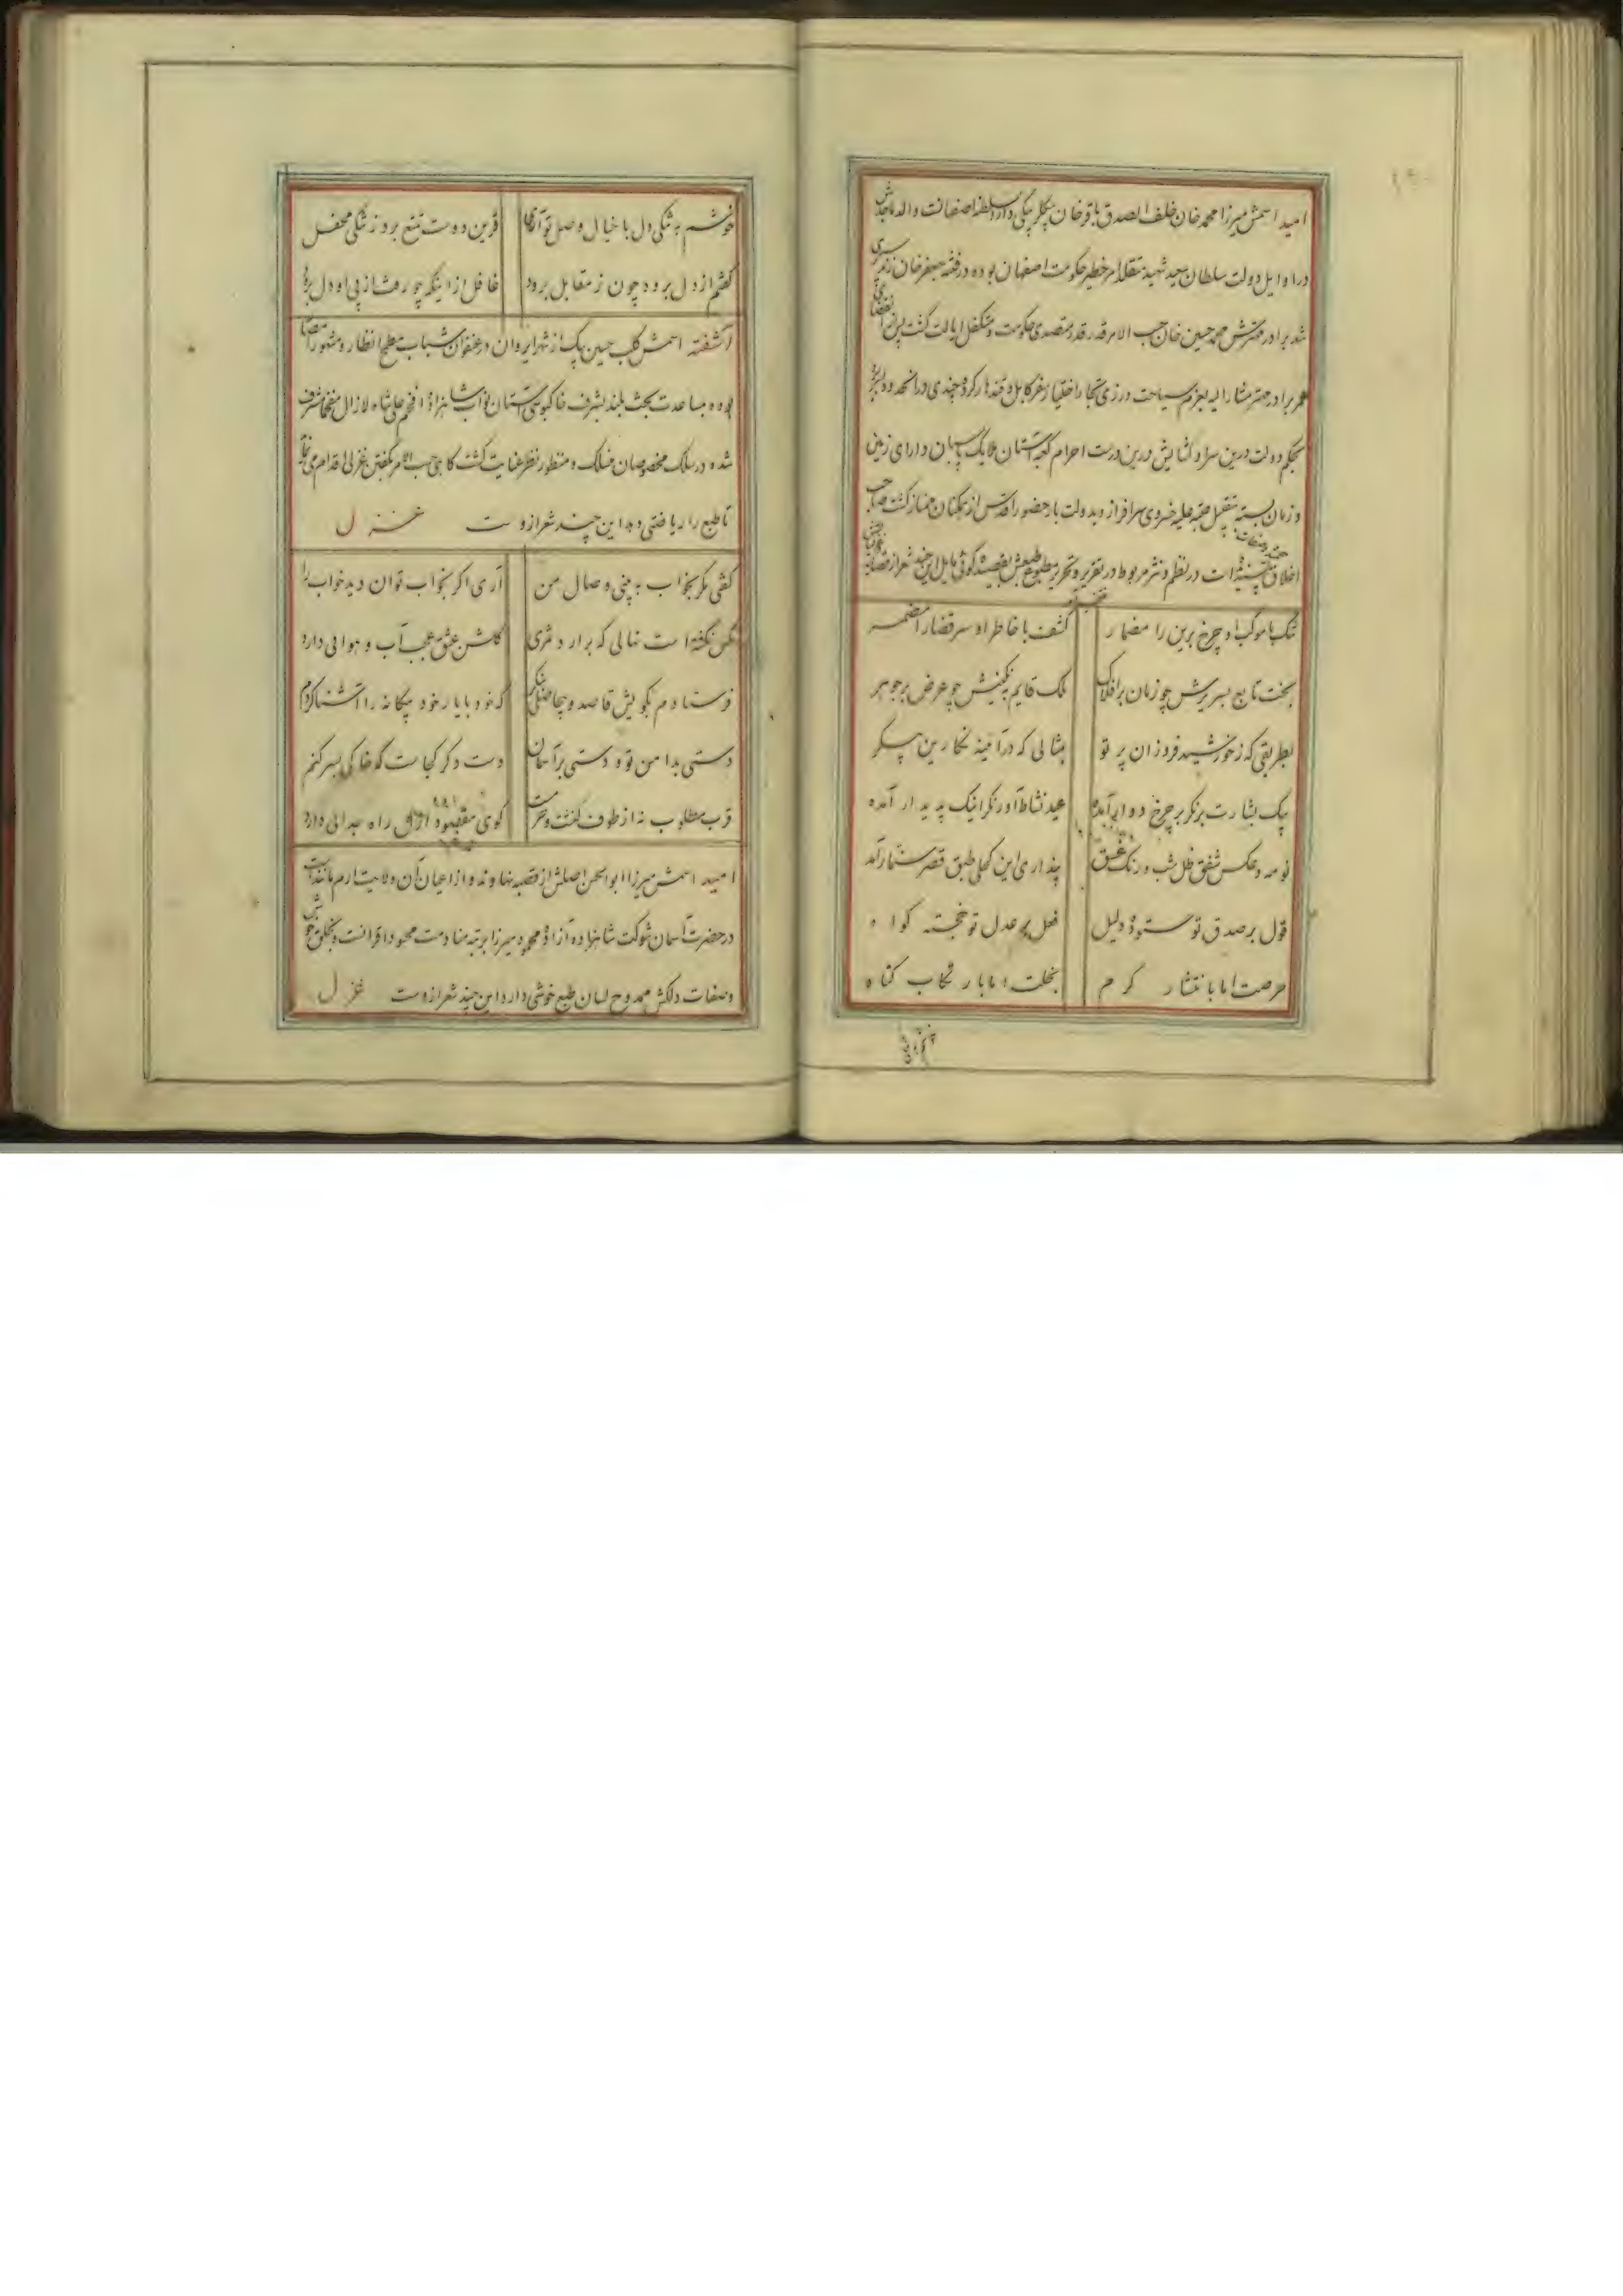 امید اسمش میرزا محمد خان خلف الصدق باقر خان بیگلربیگی دارالسلطنه اصفهانست والد ماجدش
در اوایل دولت سلطان سعید شهید متقلد امر خطیر حکومت اصفهان بوده در فتنه جعفر خان زند
شد برادر مهترش محمد حسین خان حسب الامر قدر قدر متصدی حکومت و متکفل ایالت گشت پس از انقضای
عمر برادر مهتر مشار الیه بعزم سیاحت ورزی تجار اختیار سفر کابل و قندهار کرده چندی در انحدود
بحکم دولت درین سرا و آسایش درین درست احرام کعبه آستان ملایک پاسبان دارای زمین
و زمان بسته بتقبیل عتبه علیه خسروی سرافراز و بدولت بار حضور اقدس از همگنان ممتاز گشت صاحب
اخلاق پسندیده است در نظم و نثر مربوط در تقریر و تحریر مطبوع طبعش بقصیده گوئی مایل این چند شعر از قصاید
تنگ با موکب او چرخ برین را مضمار
کشف با خاطر او سر قضا را مضمر
بخت تابع بسریرش چو زمان بر افلاک
ملک قایم بنگینش چو عرض بر جوهر
بطریقی که ز خورشید فروزان پرتو
بمثالی که در آئینه نگارین پیکر
پیک بشارت بر نگر بر چرخ دوار آمده
عید نشاط آور نگر اینک پدیدار آمده
نو مه و عکس شفق ظل شب و رنگ غسق
پنداری این کحلی طبق قصر سنمار آمد
قول بر صدق تو ستوده دلیل
فعل بر عدل تو خجسته گواه
حرصت اما بانتشار کرم
بخلت اما بارتکاب گناه
خوشم به تنگی دل با خیال وصل تو آری
قرین دوست تمتع برد ز تنگی محفل
گفتم از دل برود چون ز مقابل برود
غافل از اینکه چو رفت از پی او دل برود
آشفته اسمش کلب حسین بیک از شهر ایروان در عنفوان شباب مطمح انظار و مشهور
بوده بمساعدت بخت بلند بشرف خاکبوسی آستان نواب شاهزاده افخم علی شاه لازال مفخما مشرف
شده در سلک مخصوصان منسلک و منظور نظر عنایت گشت گاهی حسب الامر بگفتن غزلی اقدام می نماید
تا طبع را ریاضتی دهد این چند شعر ازوست غزل
گفتی مگر بخواب ببینی وصال من
آری اگر بخواب توان دید خواب را
کس نگفته است نهالی که برآرد ثمری
گلشن عشق عجب آب و هوائی دارد
فرستادم بکویش قاصد و بیجاصلی بنگر
که خود با یار خود بیگانه را آشنا کردم
دستی بدامن تو و دستی بر آسمان
دست دگر کجاست که خاکی بسر کنم
قرب مطلوب نه از طوف کنشت و حرمست
کوی مقصود ازان راه جدائی دارد
امید اسمش میرزا ابوالحسن اصلش از قصبه نهاوند و از اعیان آن ولایت ارم مانند است
در حضرت آسمان شوکت شاهزاده آزاده محمود میرزا برتبه منادمت محسود اقرانست و بخلق خوش
وصفات دلکش ممدوح لسان طبع خوشی دارد این چند شعر ازوست غزل